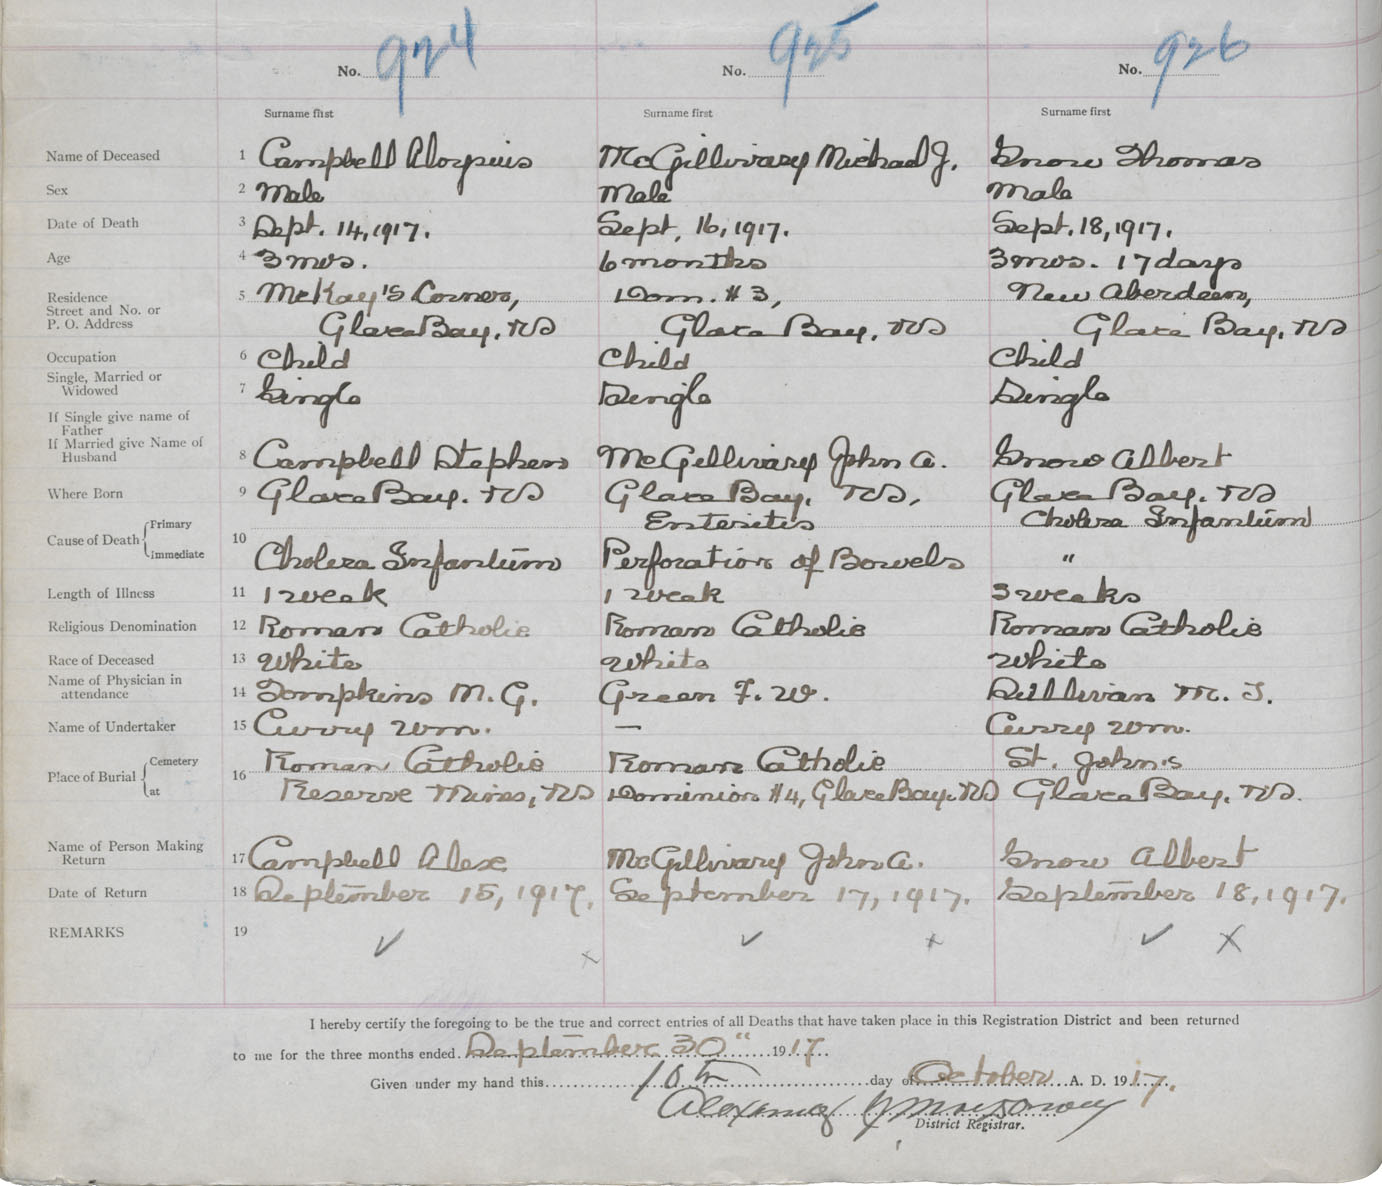 No. 924 No. 925 No. 926
Surname first Surname first Surname first
Name of Deceased 1 Campbell Aloysius McGillivary Michael J. Snow Thomas
Sex 2 Male Male Male
Date of Death 3 Sept. 14, 1917. Sept. 16, 1917. Sept. 18, 1917.
Age 4 3 mos. 6 months 3 mos. 17 days
Residence 5 McKay's Corner, Dom. #3, New Aberdeen,
Street and No. or
P. O. Address Glace Bay, NS Glace Bay, NS Glace Bay, NS
Occupation 6 Child Child Child
Single, Married or
Widowed 7 Single Single Single
If Single give name of
Father
If Married give Name of
Husband 8 Campbell Stephen McGillivary John A. Snow Albert
Where Born 9 Glace Bay. NS Glace Bay, NS, Glace Bay, NS
Cause of Death Primary Enteritis Cholera Infantum
10
Immediate Cholera Infantum Perforation of Bowels "
Length of Illness 11 1 week 1 week 3 weeks
Religious Denomination 12 Roman Catholic Roman Catholic Roman Catholic
Race of Deceased 13 White White White
Name of Physician in
attendance 14 Tompkins M. G. Green F. W. Sullivan M. T.
Name of Undertaker 15 Curry Wm. — Curry Wm.
Place of Burial Cemetery 16 Roman Catholic Roman Catholic St. John's
at Reserve Mines, NS Dominion #4, Glace Bay, NS Glace Bay, NS.
Name of Person Making
Return 17 Campbell Alex McGillivary John A. Snow Albert
Date of Return 18 September 15, 1917. September 17, 1917. September 18, 1917.
REMARKS 19 ✓ x ✓ x ✓ X
I hereby certify the foregoing to be the true and correct entries of all Deaths that have taken place in this Registration District and been returned
to me for the three months ended. September 30" 1917
Given under my hand this 10th day of October A. D. 1917.
District Registrar.